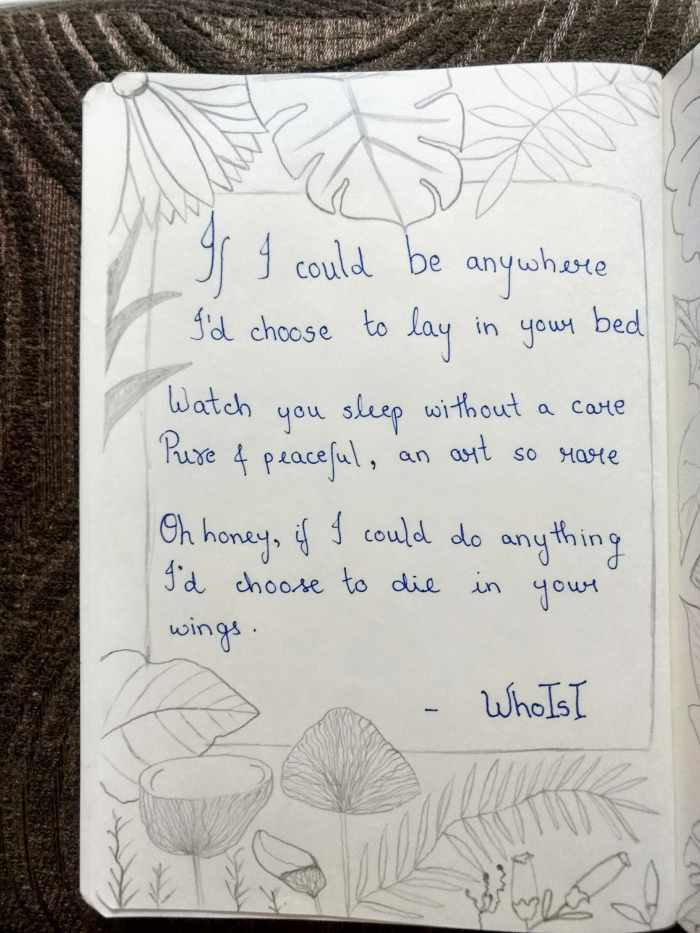 If I could be anywhere
I'd choose to lay in your bed
Watch you sleep without a care
Pure & peaceful, an art so rare
Oh honey, if I could do anything
I'd choose to die in your
wings.
- WhoIsI